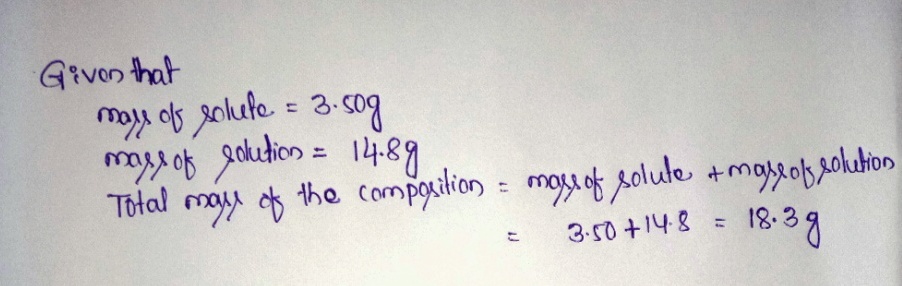 Given that
mass of solute = 3.50g
mass of solution = 14.8g
Total mass of the composition = mass of solute + mass of solution
= 3.50 + 14.8 = 18.3g